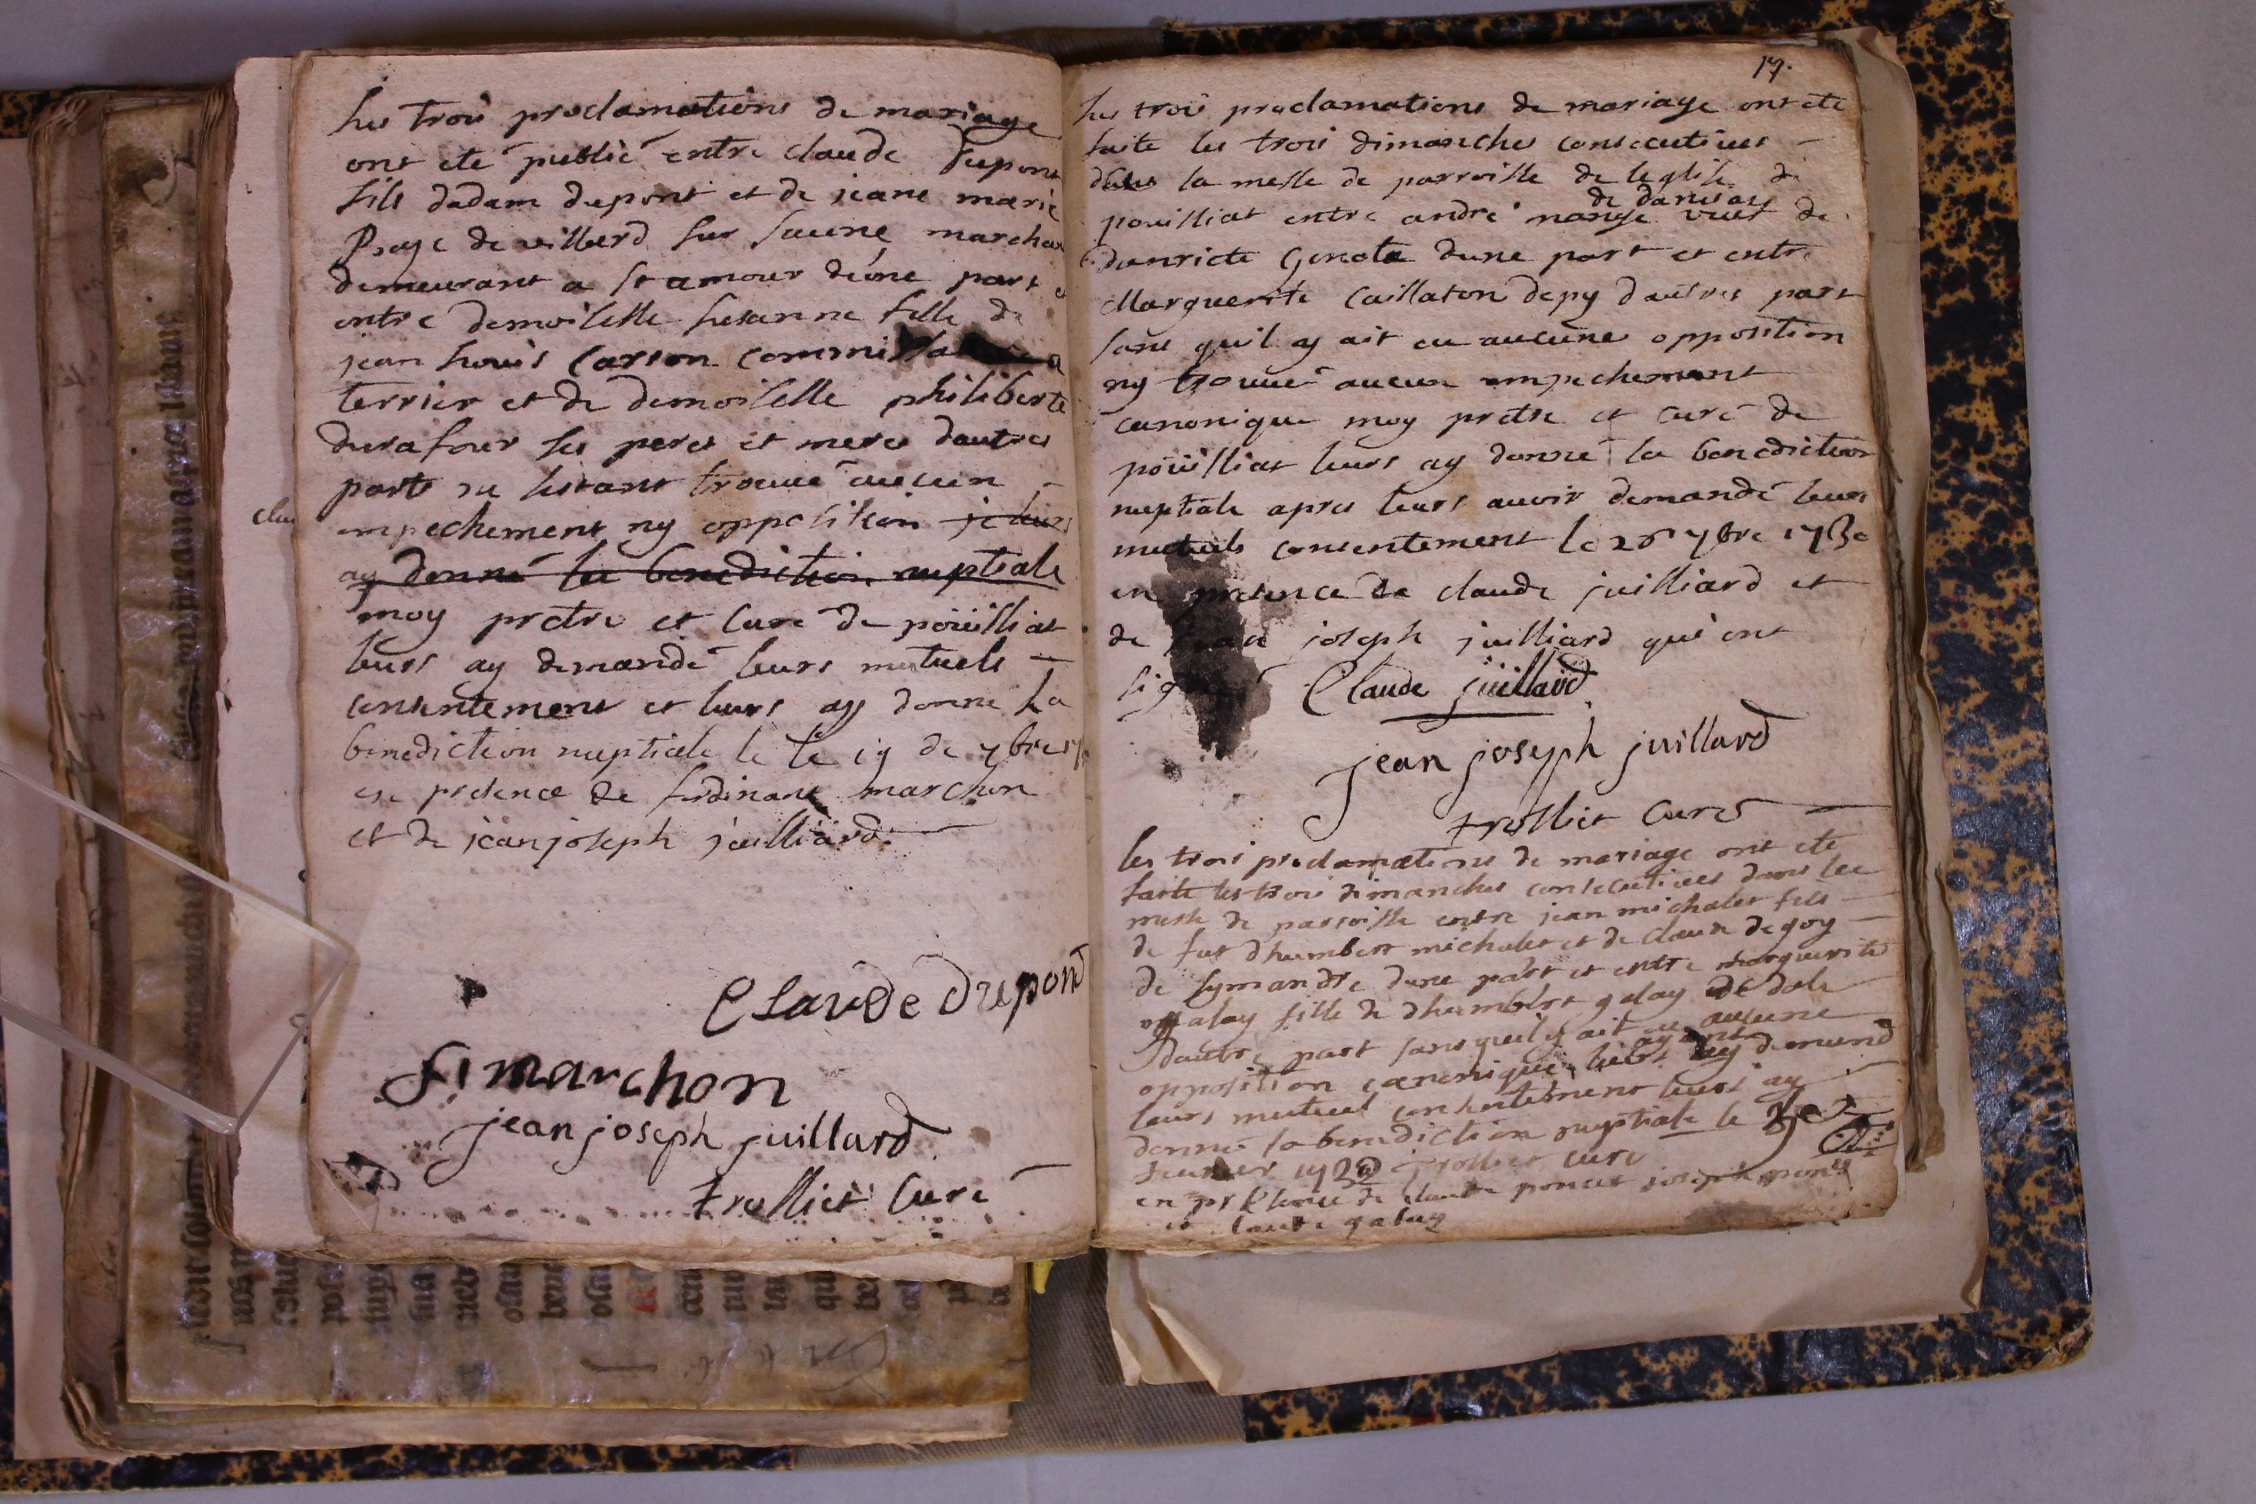 les trois proclamations de mariage
ont eté publié entre claude dupont
fils dadam dupont et de jeane marie
de villard sur saune marchan
demeurant a st amour deune part et
entre demoiselle susanne fille de
jean louis carron commissaire a
terrier et de demoiselle philiberte
durafour ses peres et meres dautres
parts ne sestant trouué aucun
empechement ny opposition je leurs
ay donné la benediction nuptiale
moy pretre et curé de poüilliat
leurs ay demandé leurs mutuels
consentement et leurs ay donné la
benediction nuptiale le le 19 de 7bre
en presence de ferdinand marchon
et de jean joseph juilliard
Claude dupont
f! marchon
jean joseph juillard
trolliet Curé
17.
les trois proclamations de mariage ont eté
faite les trois dimanches consecutiues
dans la messe de parroisse de leglise de
pouilliat entre andré vuef de
danriete d'une part et entre
Marguerite caillaton depy dautres part
sans quil ay ait eu aucune opposition
ny trouué aucun empechement
canonique moy pretre et curé de
poüilliat leurs ay donné la benediction
nuptiale apres leurs auoir demandé leurs
mutuels consentement le 26 7bre 1730
en presence de claude juilliard et
de jean joseph juilliard qui ont
signé
Claude juillard
jean joseph juillard
trolliet Curé
les trois proclamations de mariage ont eté
faite les trois dimanches consecutiues dans la
messe de parroisse entre jean michalet fils
de fut dhumbert michalet et de claude
de symandre dune part et entre marguerite
galay fille de dhumbert galay de dole
dautre part sans quil y ait eu aucune
opposition canonique leurs ayant demandé
leurs mutuel consentement leurs ay
donné la benediction nuptiale le
feurier trolliet curé
en presence de claude poncet joseph poncet
et claude galay